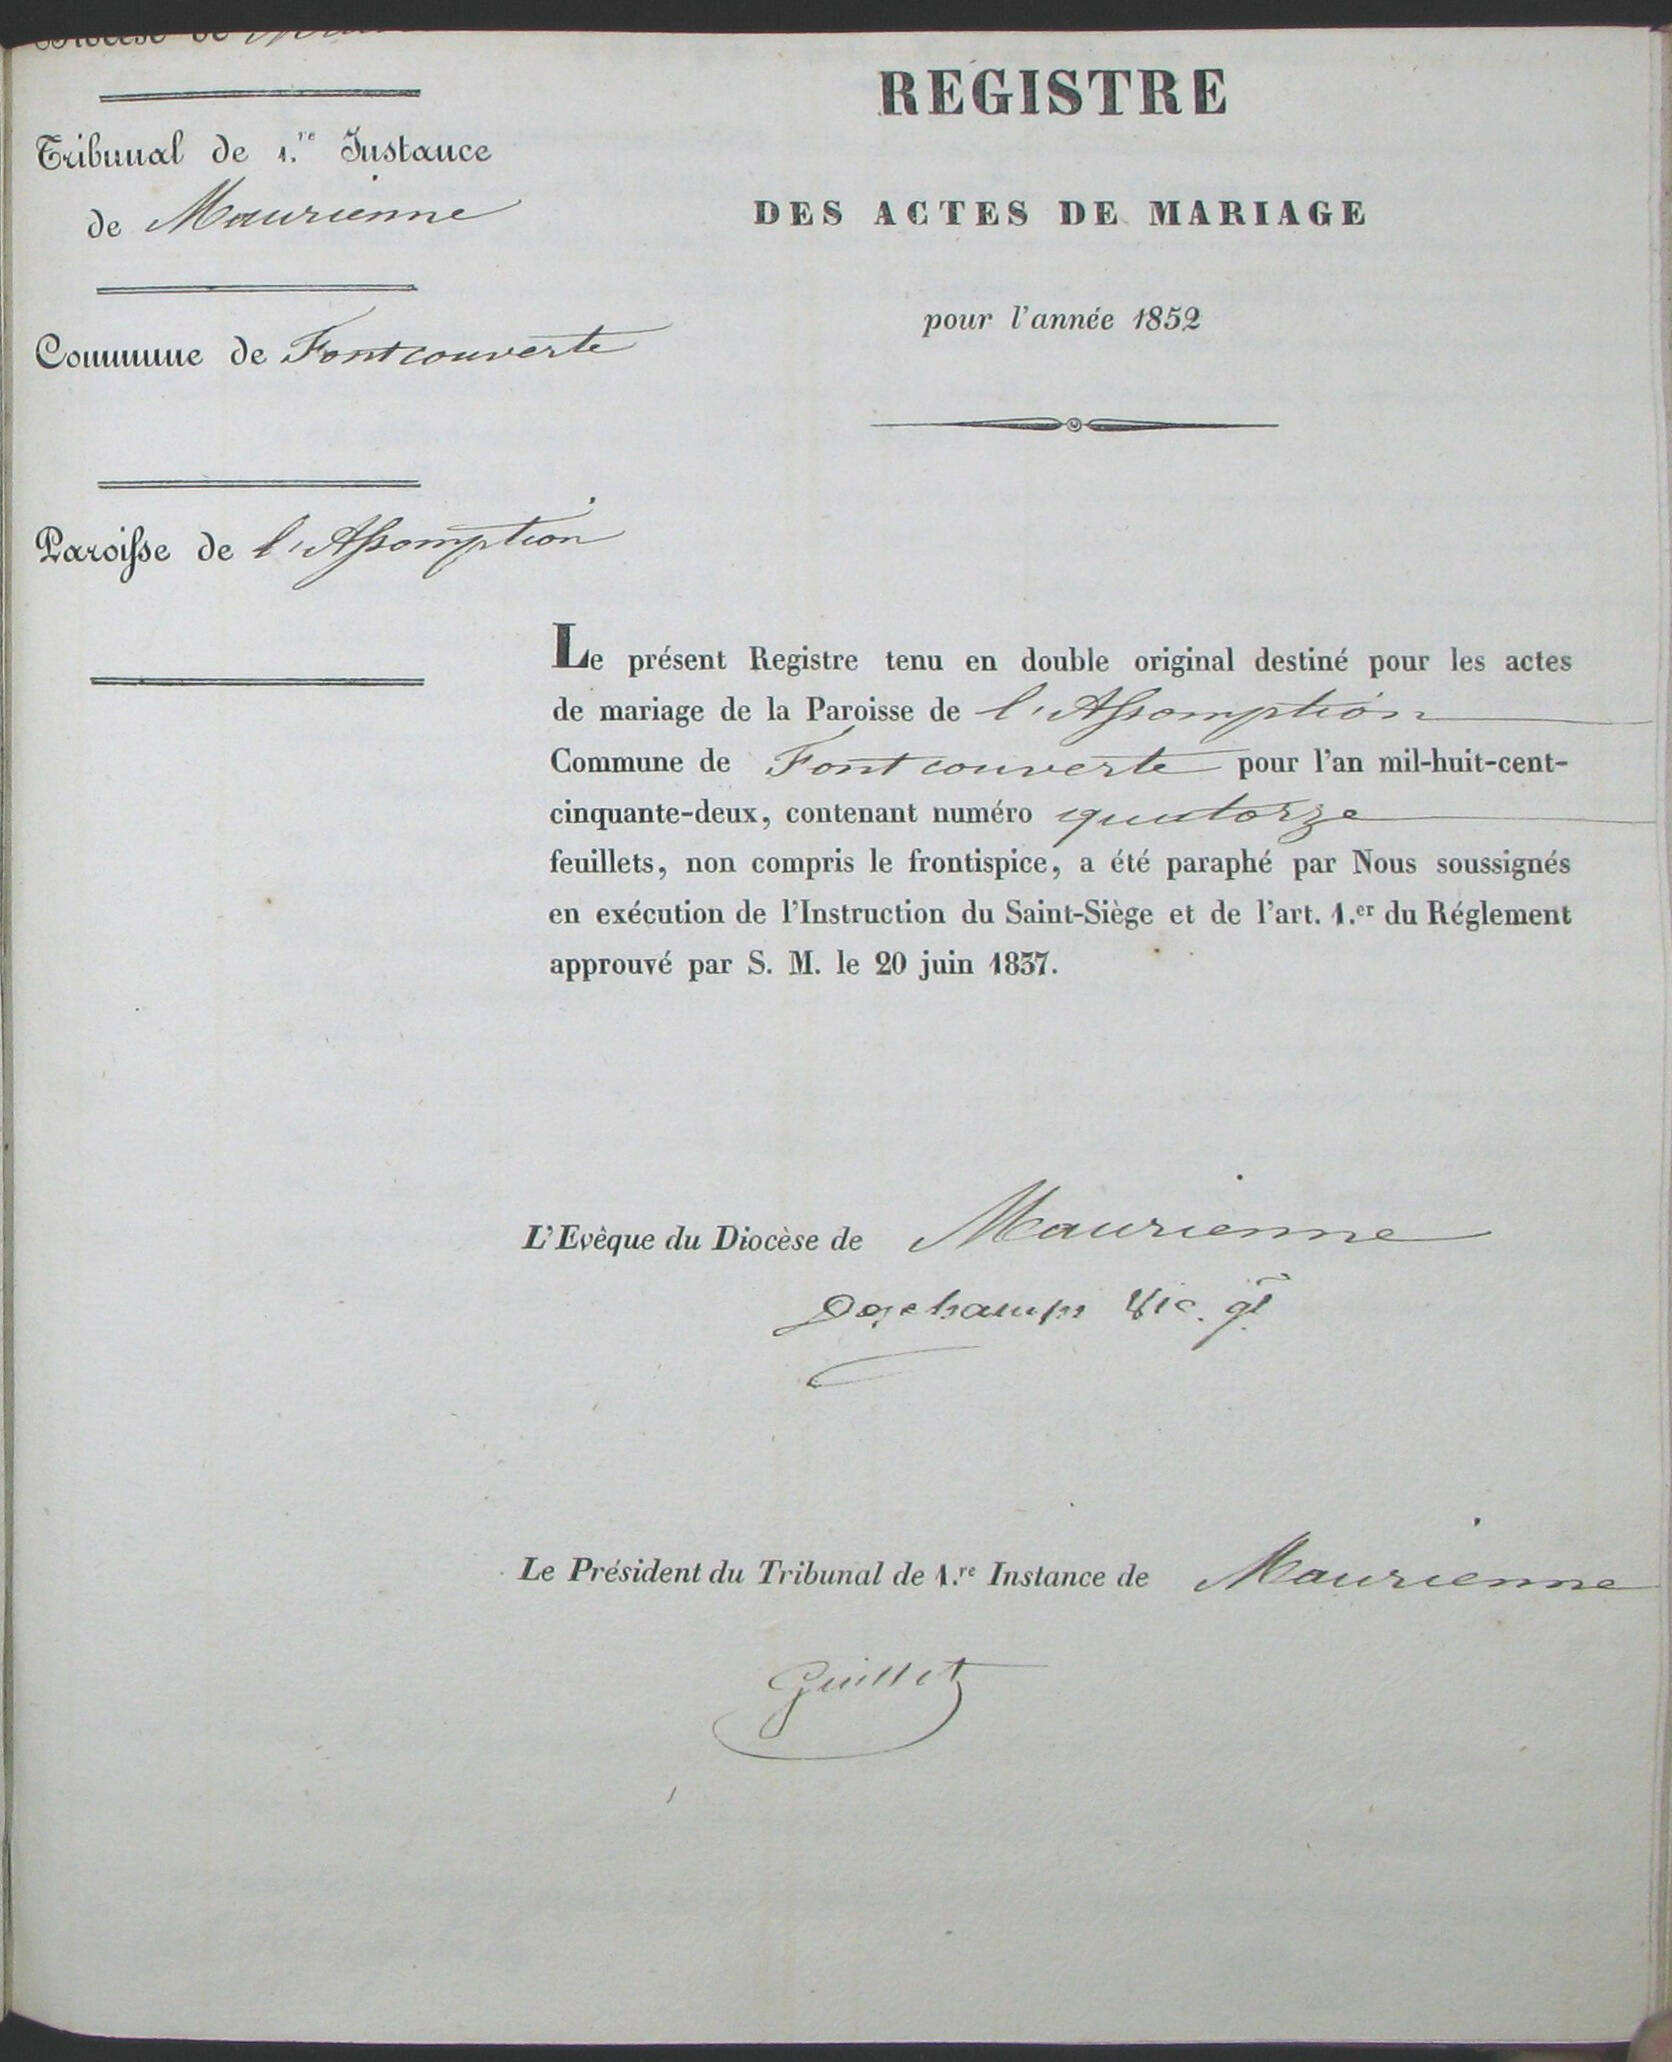 Diocèse de
Tribunal de 1.re Instance
de Maurienne
Commune de Fontcouverte
Paroisse de l'Assomption
REGISTRE
DES ACTES DE MARIAGE
pour l'année 1852
Le présent Registre tenu en double original destiné pour les actes
de mariage de la Paroisse de l'Assomption
Commune de Fontcouverte pour l'an mil-huit-cent-
cinquante-deux, contenant numéro quatorze
feuillets, non compris le frontispice, a été paraphé par Nous soussignés
en exécution de l'Instruction du Saint-Siège et de l'art. 1.er du Réglement
approuvé par S. M. le 20 juin 1837.
L'Evêque du Diocèse de Maurienne
Deschamps Vic. gl
Le Président du Tribunal de 1.re Instance de Maurienne
Guillet